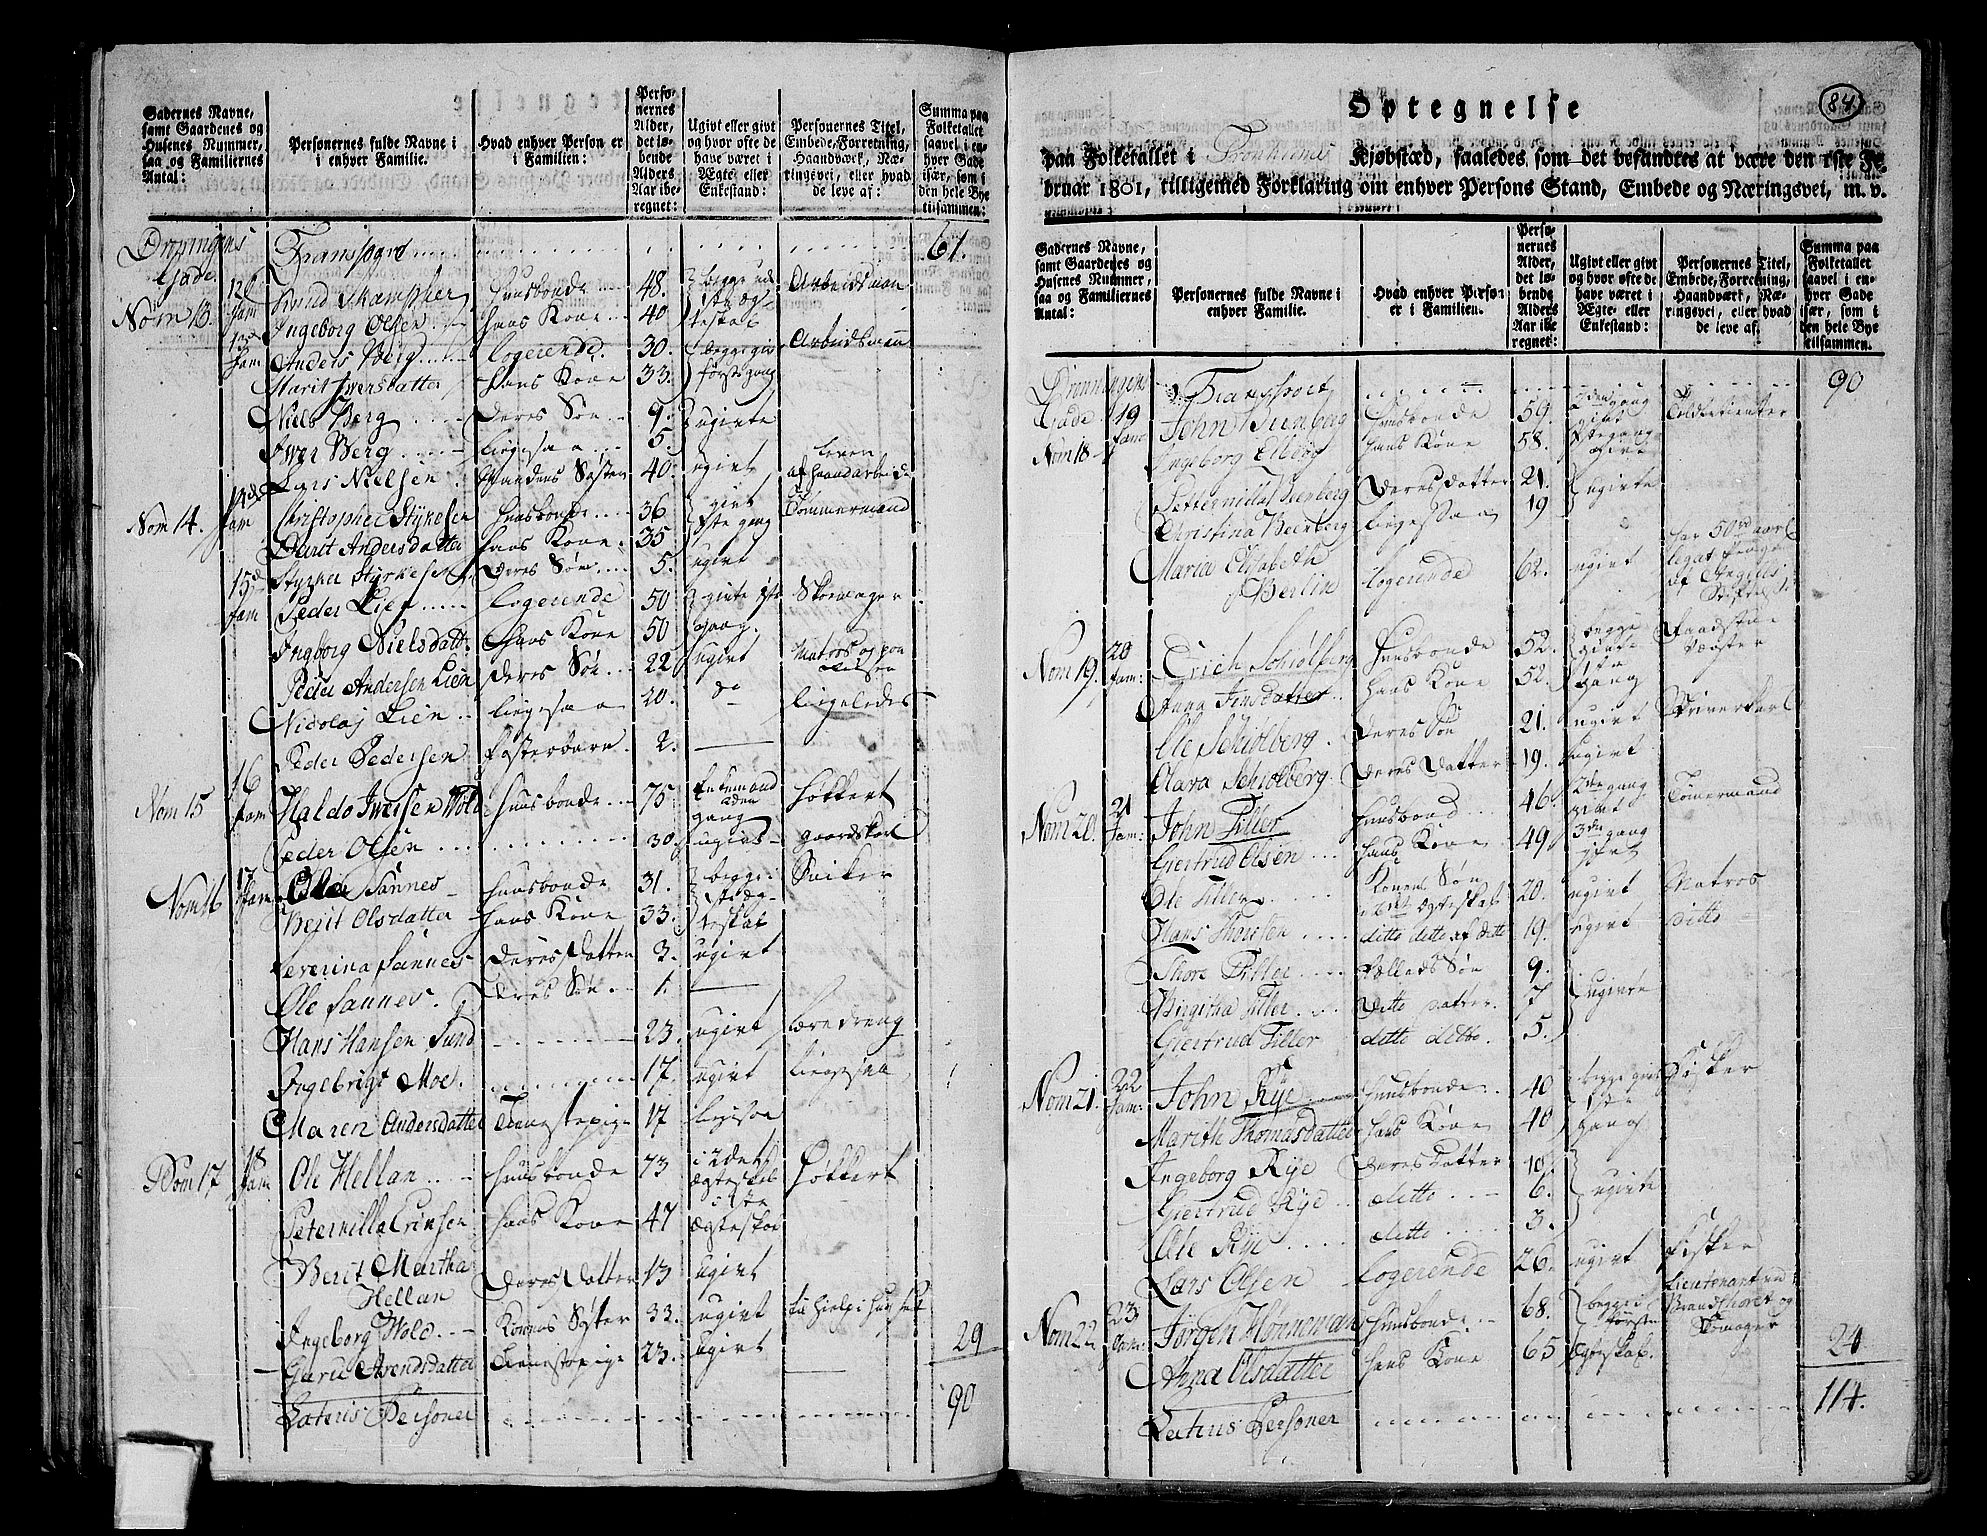 Gadernes Navne, samt Gaardenes og Husenes Nummer, saa og Familiernes Antal:
Personernes fulde Navne i i enhver Familie.
Hvad enhver Person er i Familien:
Personernes Alder, det løbende Alders Aar iberegnet:
Ugivt eller givt og hvor ofte de have været i Ægte- eller Enkestand:
Personernes Titel, Embede, Forretning, Haandværk, Næringsvei, eller hvad de leve af:
Summa paa Folketallet saavel i enhver Gade især, som i den hele Bye tilsammen:
Dronningens Gade. Transport 61.
Nom 13. 12 fam Knud Skampher Huusbonde 48. begge ud 1ste Ægteskab Arbeidsman
Ingeborg Olsen hans Kone 40
13d fam Anders Berg logerende. 30. begge givt første gang Arbeidsmann
Marit Iwersdatter hans Kone 33.
Niels Berg deres Søn 9. ugivte
Iwer Berg ligesaa 5.
Lars Nielsen Mandens Søster 40. ugivt lever af haandarbeide
Nom 14. 14de fam Christopher Styrkesen huusbonde 36 givt 1ste gang Tømmermand
Berit Andersdatter hans Kone 35
Styrker Styrkesen deres Søn 5. ugivt
15d fam Peder Lien logerende 50 givte 1ste gang. Skomager
Ingeborg Nielsdatt. hans Kone 50
Peder Andersen Lien deres Søn 22 ugivt Matros og paa
Nicolaj Lien ligesaa 20. do ligeledes
Peder Pedersen Fosterbarn 2. —
Nom 15 16 fam Haldo Iwersen Wold huusbonde 75 Enkemand gang høkkert
Peder Olsen 30. ugivt gaardskarl
Nom 16 17 fam Ole Sannes huusbonde 31. begge i 1st Ægteskab Snikker
Berit Olsdatter hans Kone 33.
Severina Sannes deres Datter 3. ugivt
Ole Sannes. deres Søn 1. —
Hans Hansen Sund 23. ugivt læredreng
Ingebrigt Moe. 17. ugivt ligesaa
Maren Andersdatter Tienestepige 17 ligesaa
Nom 17 18 fam Ole Hellan huusbonde 73 i 2det Ægteskab høkkert
Peternilla Erinsen hans Kone 47 i 1ste Ægteskab
Berit Martha Hellan deres Datter 13 ugivt
Ingeborg Wold Konens Syster 32. ugivt til hielp i huuset
Guru Arendsdatter Tienestepige 23. ugivt — 29
Lateris Personer 90
84
Optegnelse
paa Folketallet i Tronhiems Kjøbstæd, saaledes som det befandtes at være den 1ste Februar 1801, tilligemed Forklaring om enhver Persons Stand, Embede og Næringsvei, m. v.
Gadernes Navne, samt Gaardenes og Husenes Nummer, saa og Familiernes Antal:
Personernes fulde Navne i enhver Familie.
Hvad enhver Person er i Familien.
Personernes Alder, det løbende Alders Aar iberegnet:
Ugivt eller givt og hvor ofte de have været i Ægte- eller Enkestand:
Personernes Titel, Embede, Forretning, Haandværk, Næringsvei, eller hvad de leve af.
Summa paa Folketallet saavel i enhver Gade især, som i den hele Bye tilsammen.
Dronningens Gade Transport 90
Nom 18 19 fam John Beenberg Huusbonde 59. 2den gang givt
Ingeborg Elboy hans Kone 58. 1ste gang givt
Petternilla Beenberg deres datter 21. ugivte
Christina Beenberg ligesaa 19
Maria Elisabeth Berlin logerende 62. ugivt har 50 rd aarl legat penge af Angells Stiftelse
Nom 19. 20 fam: Erich Schiølberg Huusbonde 52. begge givte 1ste gang
Anna Jensdatter hans Kone 52.
Ole Schiølberg. deres Søn 21. ugivt Skriverkarl
Olara Schiølberg. deres datter 19. ugivt
Nom 20. 21 fam: John Tiller huusbond 46. 2den gang givt Tømermand
Giertrud Olsen hans Kone 49. 3die gang givt
Ole Tiller Konens Søn Ægteskab 20. ugivt Matros
Hans Thorsen ditto ditto af ditte 19. ugivt ditto
Thore Tiller Fælleds Søn 9. ugivte
Birgitha Tiller ditto datter 7
Giertrud Tiller ditto ditto 5.
Nom 21. 22 fam: John Rye huusbonde 40 begge givt 1ste gang Fisker
Marith Thomasdatter hans Kone 40
Ingeborg Rye deres datter 10. ugivte
Giertrud Rye ditto 6.
Ole Rye ditto 3.
Lars Olsen logerende 26. ugivt Fisker
Nom 22. 23 fam: Jørgen Hønneman huusbonde 68. begge i første Ægteskab. Lieutenant ved Brandkoret og Skomager
Anna Olsdatter hans Kone 65 24
Lateris Personer 114.